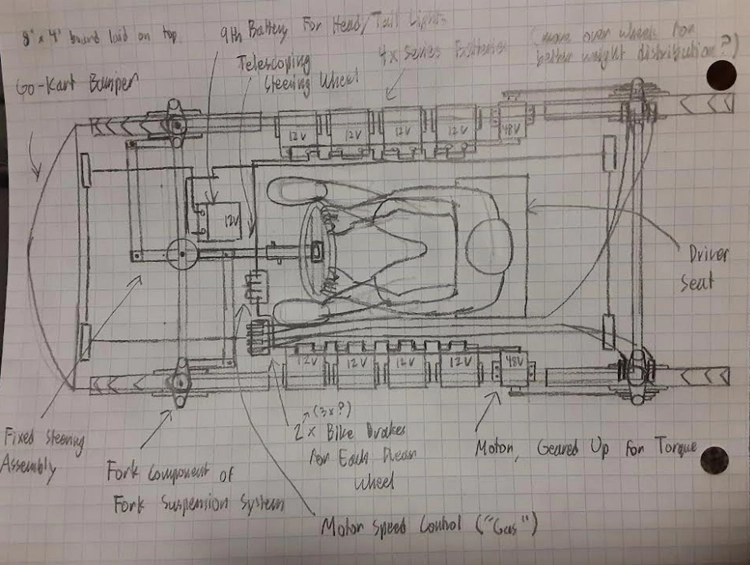 8' x 4' board laid on top
9th Battery For Head/Tail Lights
4x Series Batteries
(move over wheels for
better weight distribution?)
Go-Kart Bumper
Telescoping
Steering Wheel
12V
12V
12V
12V
48V
12V
Driver
Seat
12V
12V
12V
12V
48V
Fixed Steering
Assembly
Fork Component of
Fork Suspension System
(3x?)
2x Bike Brakes
for Each Rear
Wheel
Motor, Geared Up For Torque
Motor Speed Control ("Gas")